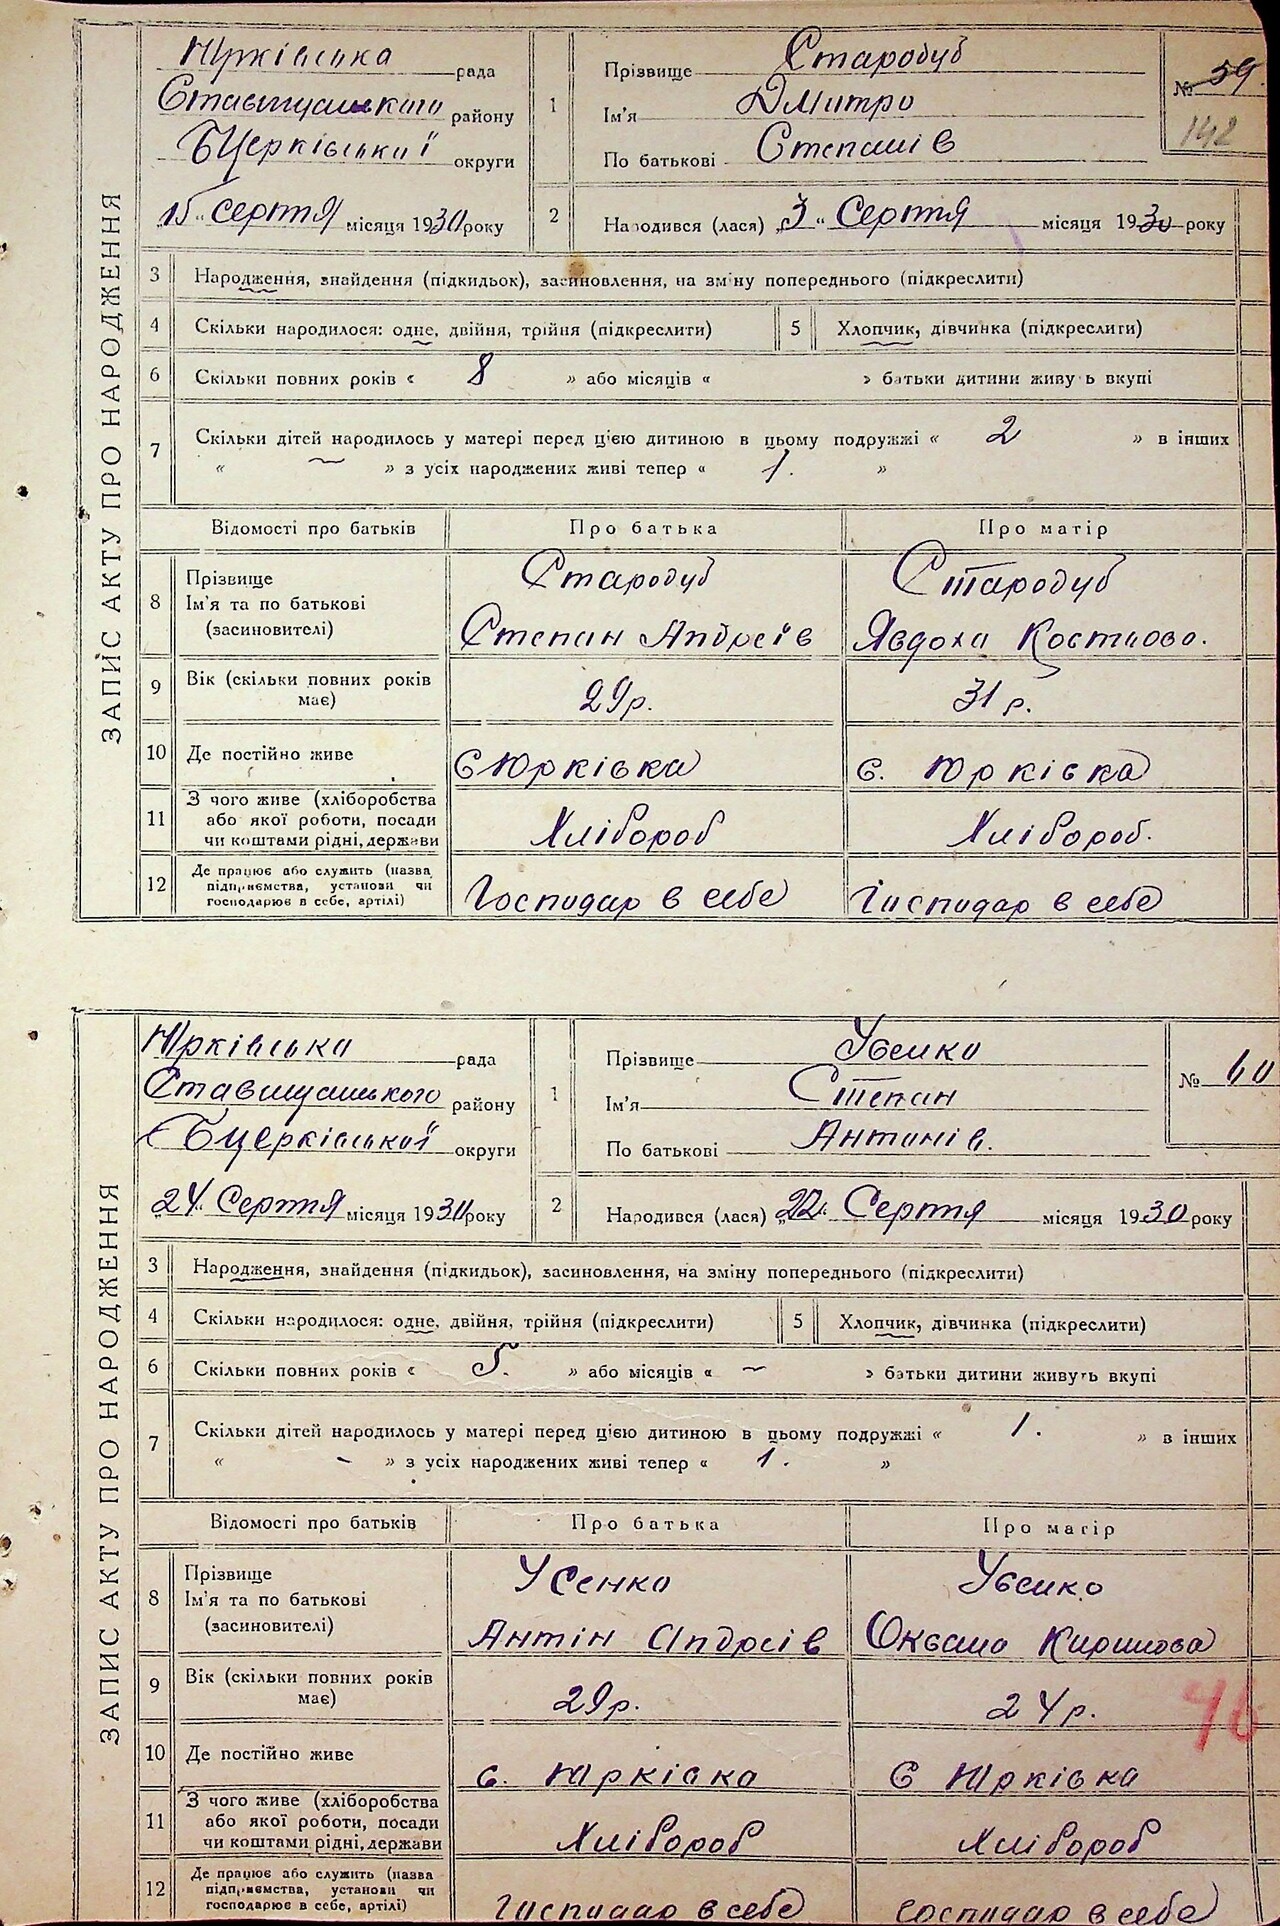 ЗАПИС АКТУ ПРО НАРОДЖЕННЯ
Юрківська рада
Ставищанського району
Бцерківської округи
15 „ серпня місяця 1930 року
1 Прізвище Стародуб
Ім'я Дмитро
По батькові Степанів
№ 59.
142
2 Народився (лася) „3 “ Серпня місяця 1930 року
3 Народження, знайдення (підкидьок), засиновлення, на зміну попереднього (підкреслити)
4 Скільки народилося: одне, двійня, трійня (підкреслити) 5 Хлопчик, дівчинка (підкреслити)
6 Скільки повних років « 8 » або місяців « » батьки дитини живу ь вкупі
7 Скільки дітей народилось у матері перед цією дитиною в цьому подружжі « 2 » в інших
« — » з усіх народжених живі тепер « 1. »
Відомості про батьків Про батька Про матір
8 Прізвище Ім'я та по батькові (засиновителі)
Стародуб Степан Андреїв
Стародуб Явдоха Костьова.
9 Вік (скільки повних років має) 29р. 31 р.
10 Де постійно живе с Юрківка с. Юрківка
11 З чого живе (хліборобства або якої роботи, посади чи коштами рідні, держави Хлібороб Хлібороб.
12 Де працює або служить (назва підприємства, установи чи господарює в себе, артілі) Господар в себе Господар в себе
ЗАПИС АКТУ ПРО НАРОДЖЕННЯ
Юрківська рада
Ставищанського району
Бцерківської округи
„24 “ Серпня місяця 1930 року
1 Прізвище Усенко
Ім'я Степан
По батькові Антонів.
№ 60
2 Народився (лася) „22“ Серпня місяця 1930 року
3 Народження, знайдення (підкидьок), засиновлення, на зміну попереднього (підкреслити)
4 Скільки народилося: одне, двійня, трійня (підкреслити) 5 Хлопчик, дівчинка (підкреслити)
6 Скільки повних років « 5. » або місяців « — » батьки дитини живуть вкупі
7 Скільки дітей народилось у матері перед цією дитиною в цьому подружжі « 1. » в інших
« — » з усіх народжених живі тепер « 1. »
Відомості про батьків Про батька Про матір
8 Прізвище Ім'я та по батькові (засиновителі)
Усенко Антін Андреїв
Усенко Оксана Кирилова
9 Вік (скільки повних років має) 29р. 24р.
46
10 Де постійно живе с. Юрківка с Юрківка
11 З чого живе (хліборобства або якої роботи, посади чи коштами рідні, держави Хлібороб Хлібороб
12 Де працює або служить (назва підприємства, установи чи господарює в себе, артілі) Господар в себе Господар в себе